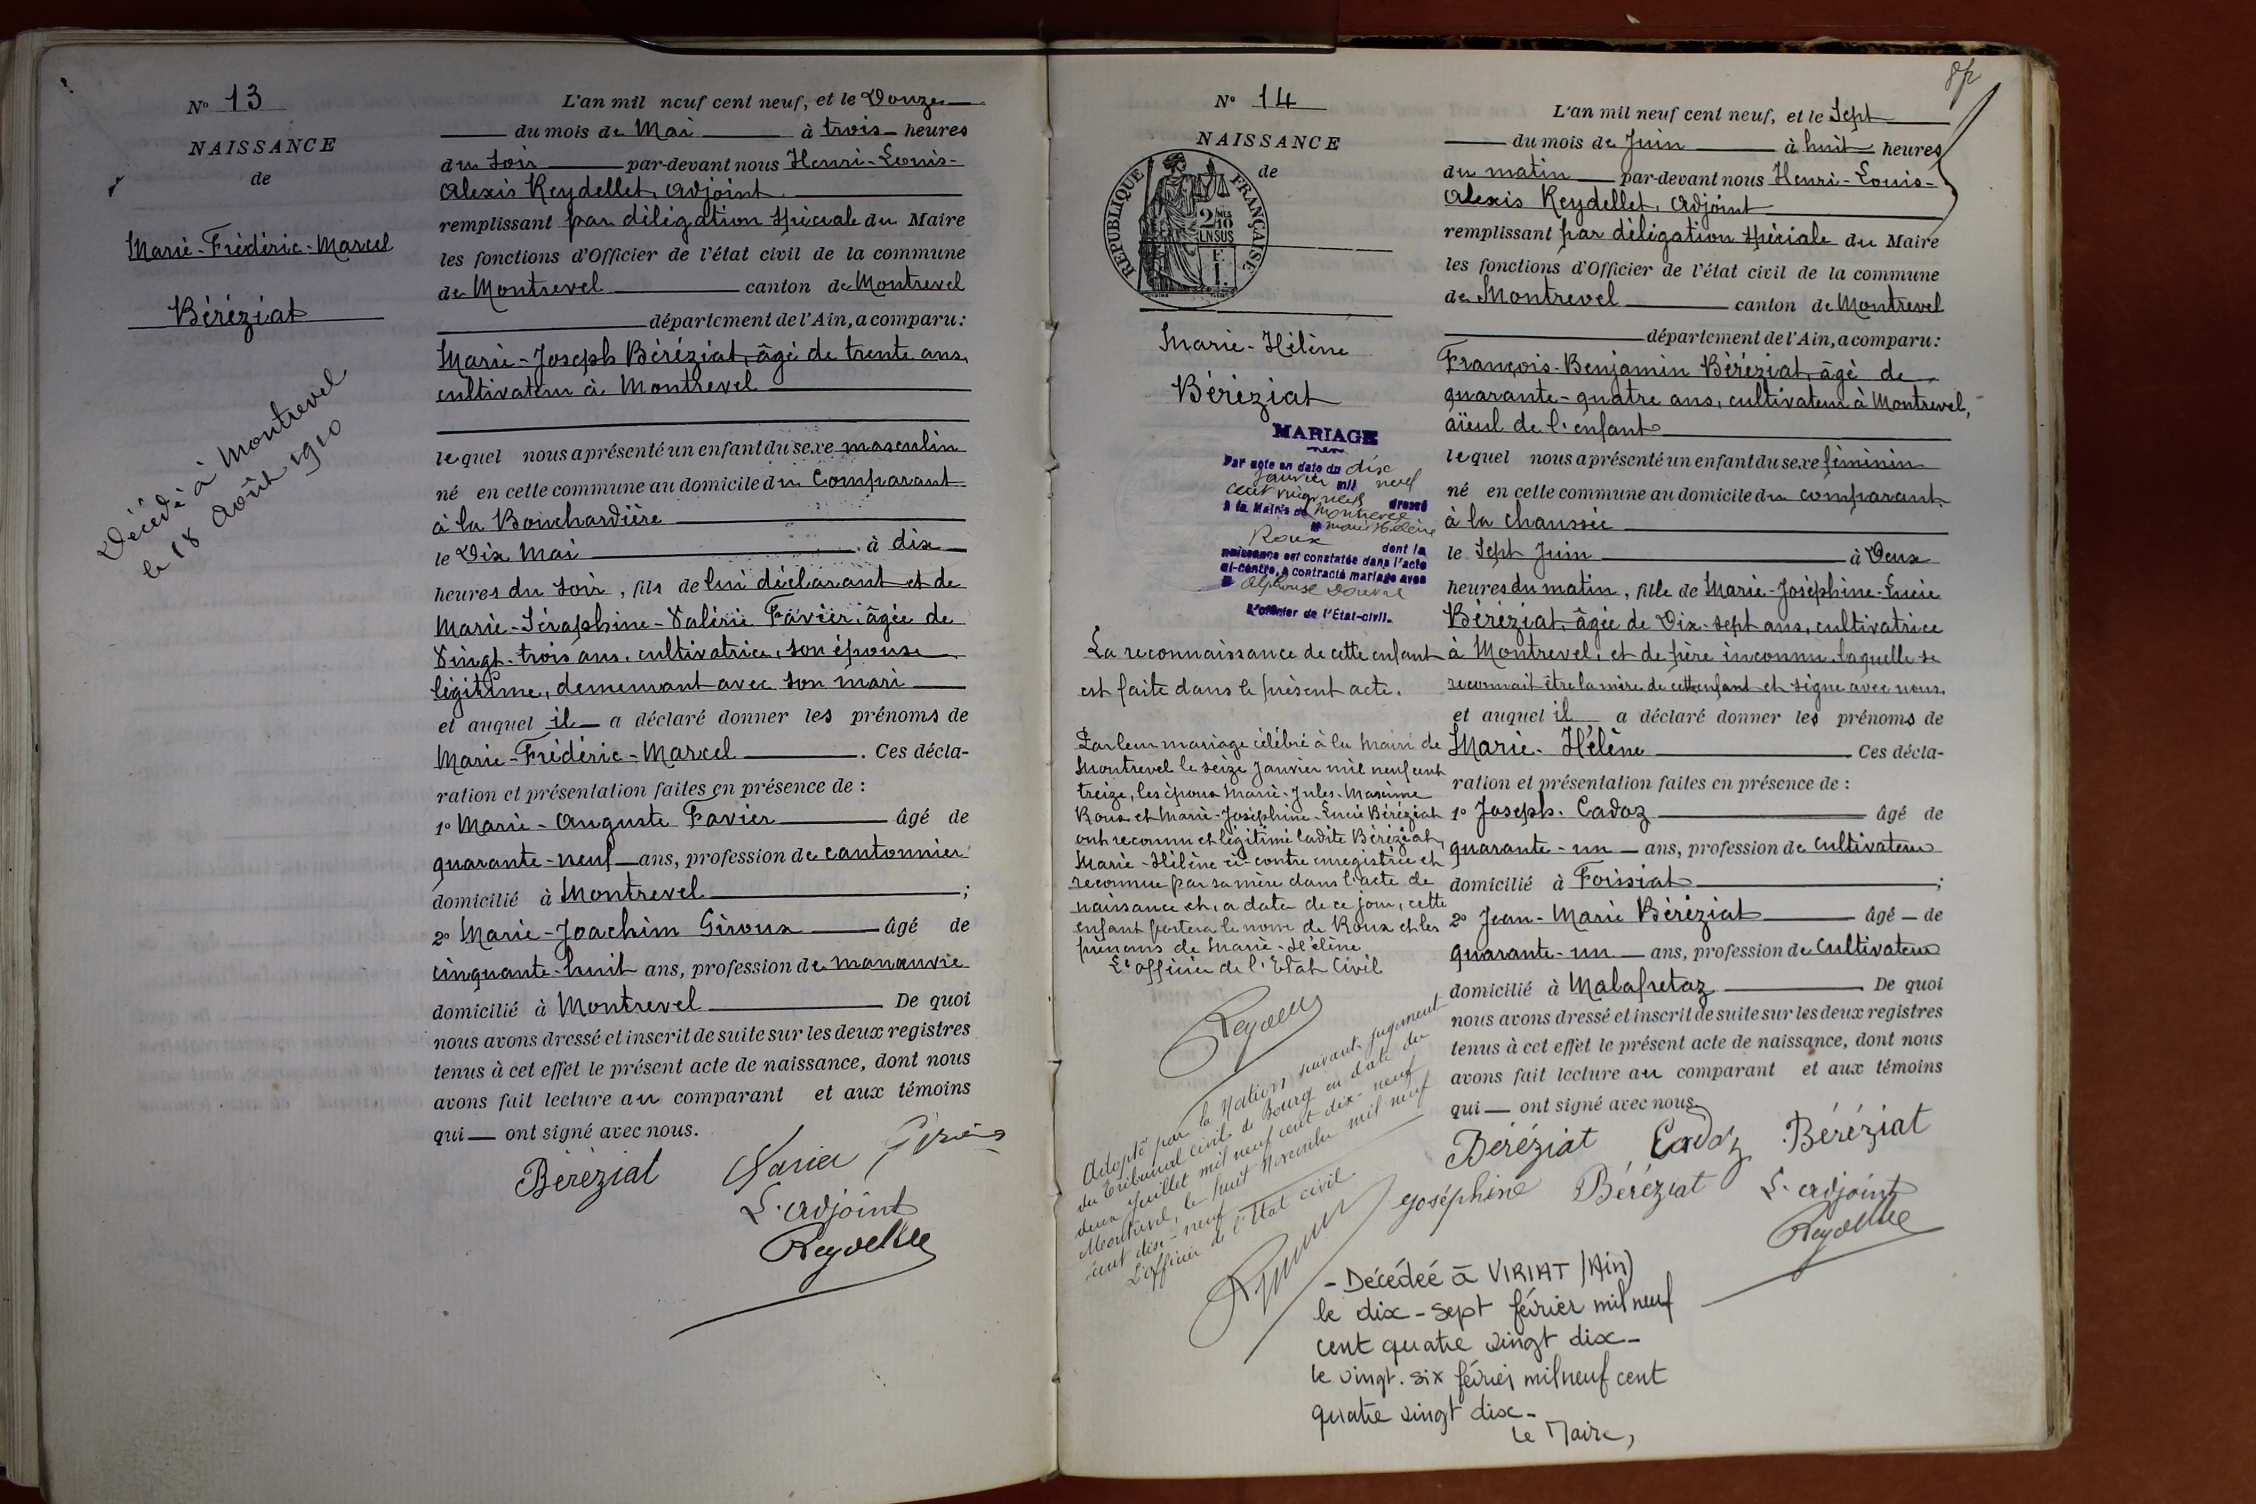 N° 13
NAISSANCE
de
Marie-Frédéric-Marcel
Béréziat
Décédé à Montrevel
le 18 Août 1910
L'an mil neuf cent neuf, et le Douze
du mois de Mai à trois heures
du soir par-devant nous Henri-Louis-
Alexis Reydellet, Adjoint
remplissant par délégation spéciale du Maire
les fonctions d'Officier de l'état civil de la commune
de Montrevel canton de Montrevel
département de l'Ain, a comparu:
Marie-Joseph Béréziat, âgé de trente ans,
cultivateur à Montrevel
lequel nous a présenté un enfant du sexe masculin
né en cette commune au domicile du Comparant
à la Bouchardière
le Dix Mai à dix
heures du soir, fils de lui déclarant et de
Marie-Séraphine-Valérie Favier, âgée de
Vingt-trois ans, cultivatrice, son épouse
légitime, demeurant avec son mari
et auquel il a déclaré donner les prénoms de
Marie-Frédéric-Marcel. Ces décla-
ration et présentation faites en présence de:
1° Marie-Auguste Favier âgé de
quarante-neuf ans, profession de cantonnier
domicilié à Montrevel;
2° Marie-Joachim Giroux âgé de
cinquante-huit ans, profession de manœuvre
domicilié à Montrevel De quoi
nous avons dressé et inscrit de suite sur les deux registres
tenus à cet effet le présent acte de naissance, dont nous
avons fait lecture au comparant et aux témoins
qui ont signé avec nous.
Béréziat Favier
L'adjoint
Reydellet
8
N° 14
NAISSANCE
de
RÉPUBLIQUE FRANÇAISE
Marie-Hélène
Béréziat
MARIAGE
Par acte en date du dix
janvier mil neuf
cent vingt neuf dressé
à la Mairie de Montrevel
Marie Hélène
Roux dont la
naissance est constatée dans l'acte
ci-contre, a contracté mariage avec
Alphonse
L'officier de l'Etat-civil.
La reconnaissance de cette enfant
est faite dans le présent acte.
Par leur mariage célébré à la Mairie de
Montrevel le seize Janvier mil neuf cent
treize, les époux Marie-Jules-Maxime
Roux et Marie-Joséphine-Lucie Béréziat
ont reconnu et légitimé ladite Béréziat,
Marie-Hélène ci-contre enregistrée et
reconnue par sa mère dans l'acte de
naissance et, a date de ce jour, cette
enfant portera le nom de Roux et les
prénoms de Marie-Hélène
L'officier de l'Etat Civil
Reydellet
Adopté par la Nation suivant jugement
du Tribunal civil de Bourg en date du
deux Juillet mil neuf cent dix-neuf
Montrevel, le huit Novembre mil neuf
cent dix-neuf
L'officier de l'Etat civil
L'an mil neuf cent neuf, et le Sept
du mois de Juin à huit heures
du matin par-devant nous Henri-Louis-
Alexis Reydellet, Adjoint
remplissant par délégation spéciale du Maire
les fonctions d'Officier de l'état civil de la commune
de Montrevel canton de Montrevel
département de l'Ain, a comparu:
François-Benjamin Béréziat, âgé de
quarante-quatre ans, cultivateur à Montrevel,
aïeul de l'enfant
lequel nous a présenté un enfant du sexe féminin
né en cette commune au domicile du comparant
à la chaussée
le Sept Juin à Deux
heures du matin, fille de Marie-Joséphine-Lucie
Béréziat, âgée de Dix-sept ans, cultivatrice
à Montrevel, et de père inconnu, laquelle se
reconnait être la mère de cette enfant et signe avec nous.
et auquel il a déclaré donner les prénoms de
Marie-Hélène Ces décla-
ration et présentation faites en présence de:
1° Joseph. Cadoz âgé de
quarante-un ans, profession de Cultivateur
domicilié à Foissiat;
2° Jean-Marie Béréziat âgé de
quarante-un ans, profession de Cultivateur
domicilié à Malafretaz. De quoi
nous avons dressé et inscrit de suite sur les deux registres
tenus à cet effet le présent acte de naissance, dont nous
avons fait lecture au comparant et aux témoins
qui ont signé avec nous.
Béréziat Cadoz Béréziat
Joséphine Béréziat L'adjoint
Reydellet
- Décédée à VIRIAT (Ain)
le dix-sept février mil neuf
cent quatre vingt dix-
le vingt. six février mil neuf cent
quatre vingt dix-
Le Maire,